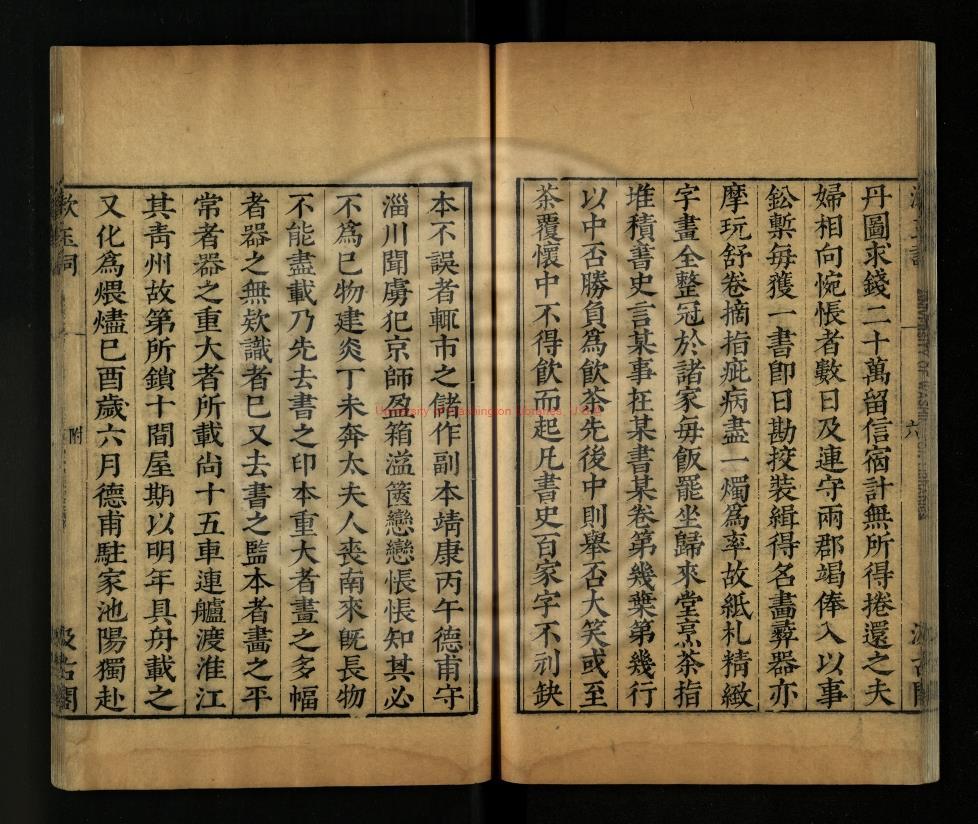 丹圖求錢二十萬留信宿計無所得捲還之夫
婦相向惋悵者數日及連守兩郡竭俸入以事
鈆槧每獲一書卽日勘挍裝緝得名畫彝器亦
摩玩舒卷摘指疵病盡一燭爲率故紙札精緻
字畫全整冠於諸家每飯罷坐歸來堂烹茶指
堆積書史言某事在某書某卷第幾葉第幾行
以中否勝負爲飲茶先後中則舉否大笑或至
茶覆懷中不得飲而起凡書史百家字不刓缺
本不誤者輒市之儲作副本靖康丙午德甫守
淄川聞虜犯京師盈箱溢篋戀戀悵悵知其必
不爲已物建炎丁未奔太夫人喪南來旣長物
不能盡載乃先去書之印本重大者畫之多幅
者器之無欵識者已又去書之監本者畫之平
常者器之重大者所載尙十五車連艫渡淮江
其靑州故第所鎖十間屋期以明年具舟載之
又化爲煨燼已酉歲六月德甫駐家池陽獨赴
漱玉詞
附
六
汲古閣
University of Washington Libraries, U.S.A.